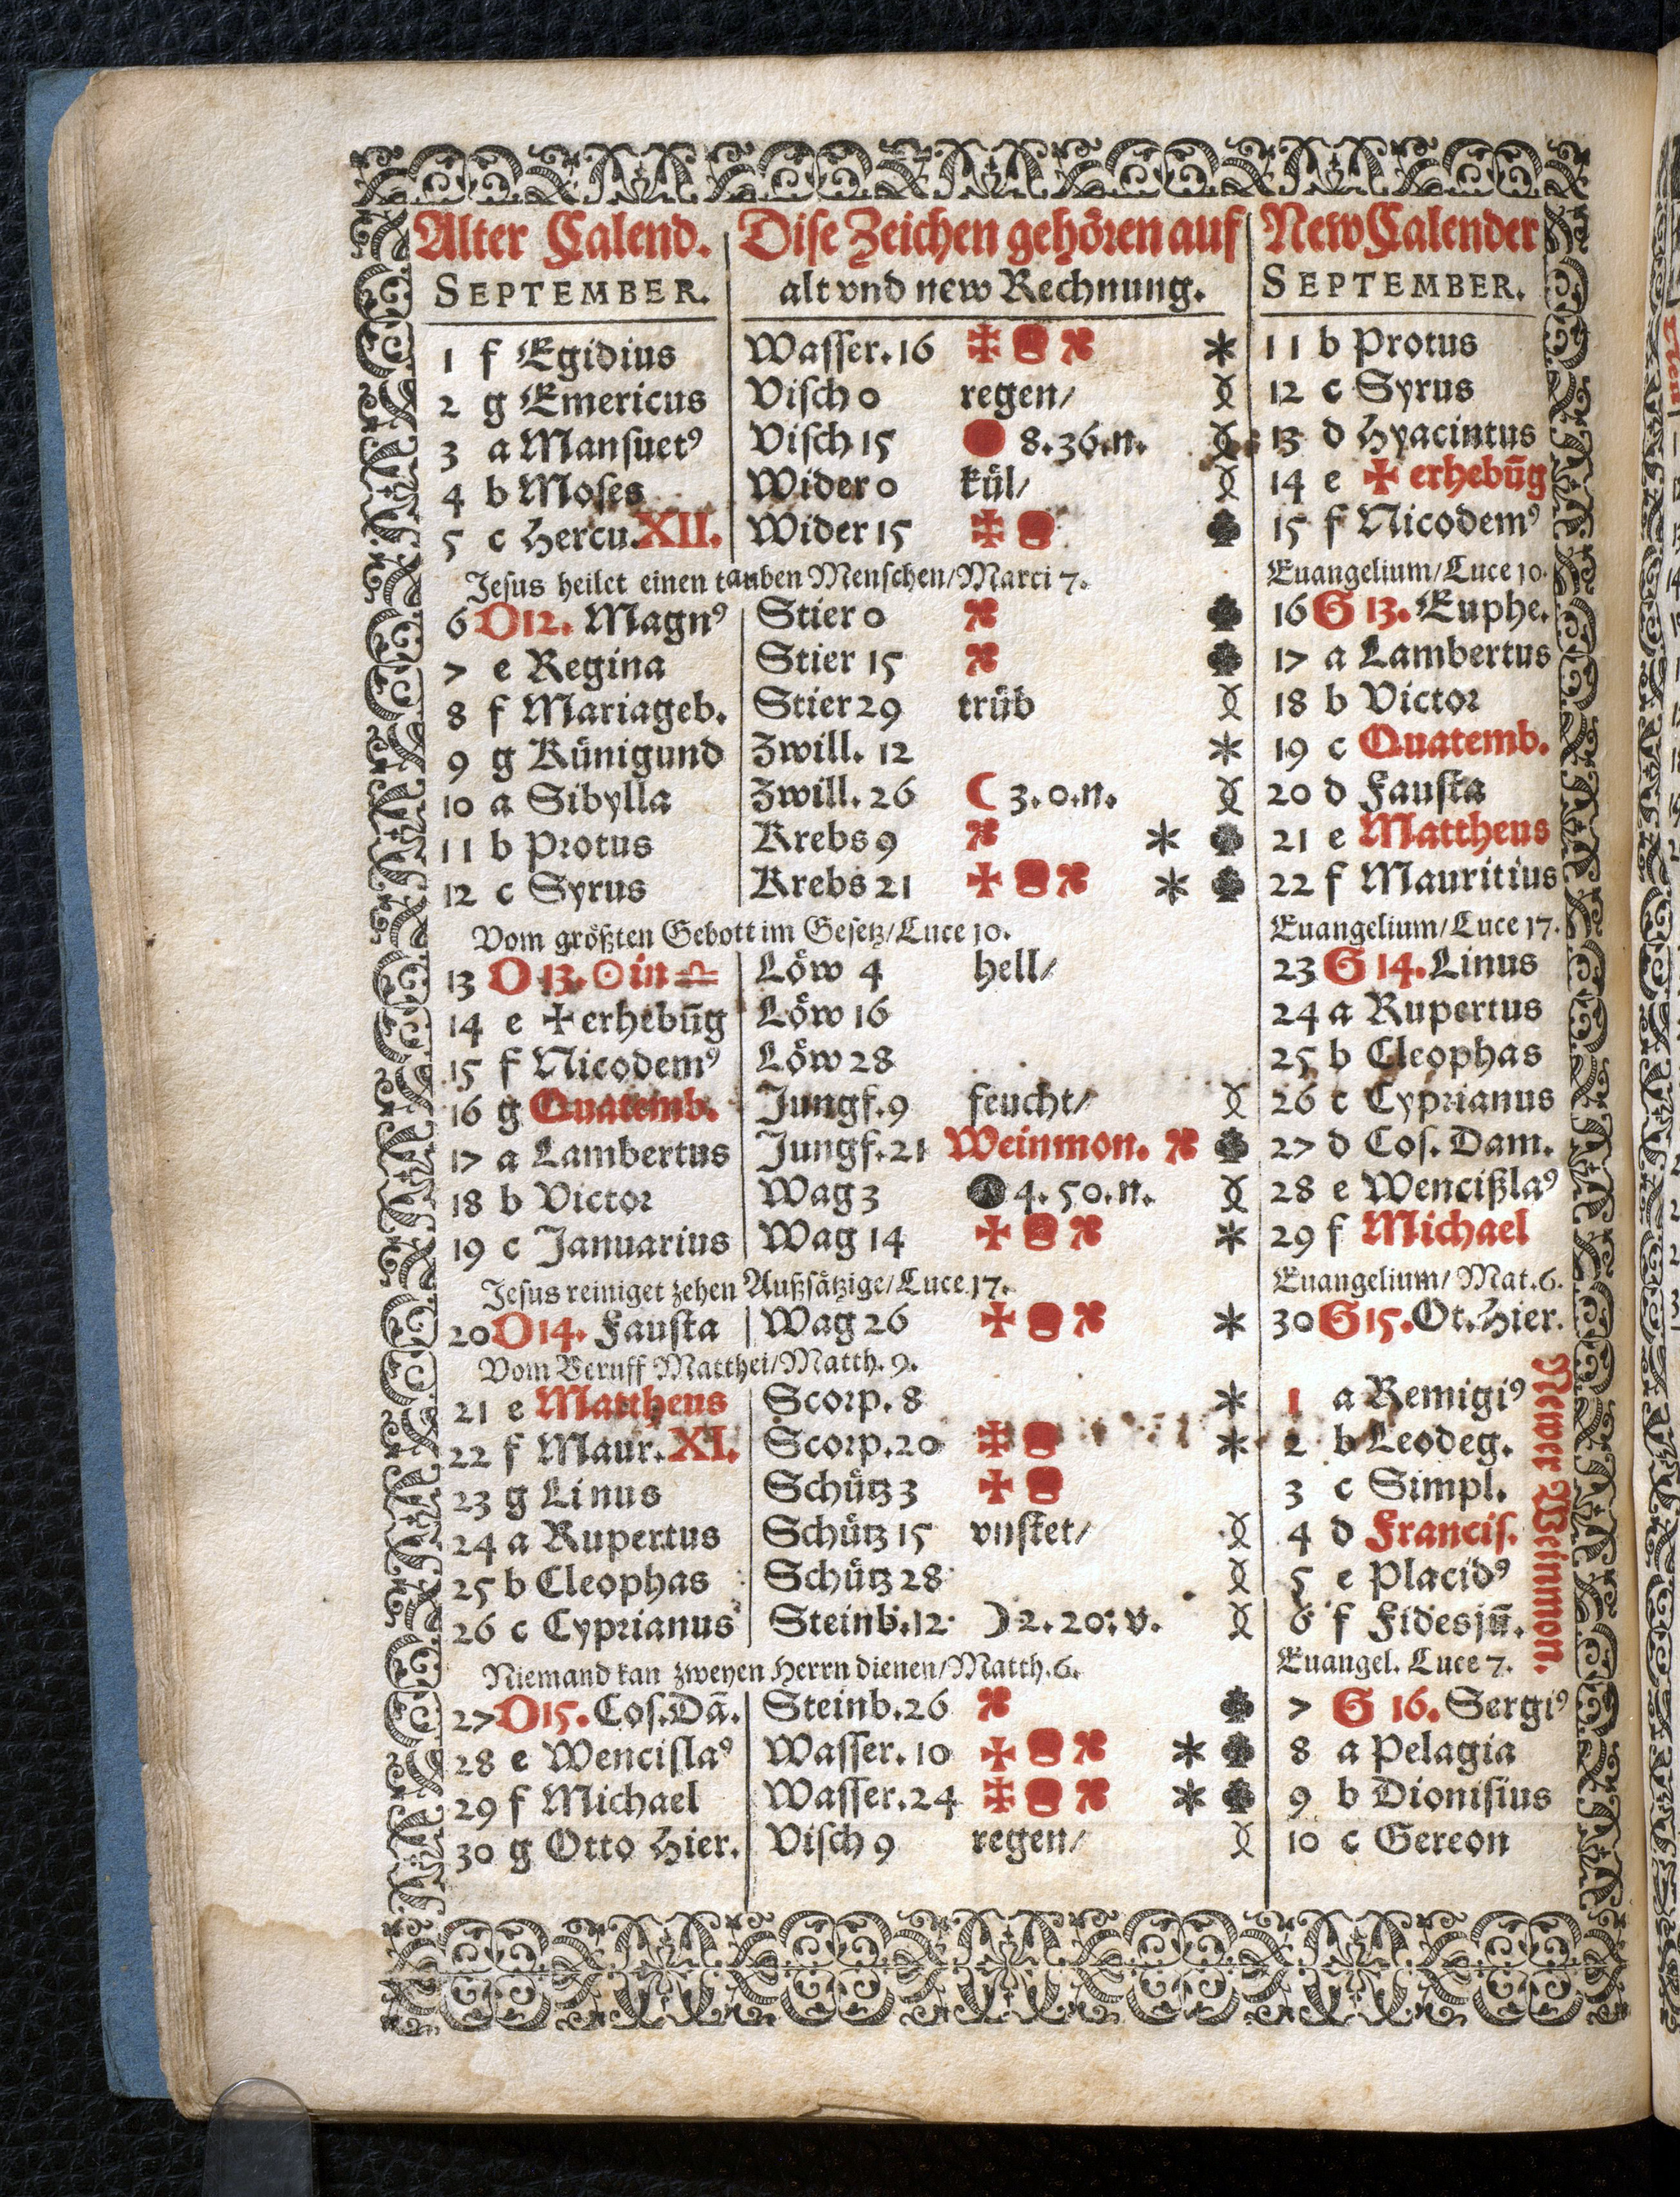 Alter Calend. Dise Zeichen gehören auf New Calender
SEPTEMBER. alt vnd new Rechnung. SEPTEMBER.
1 f Egidius Wasser. 16 11 b Protus
2 g Emericus Visch 0 regen/ 12 c Syrus
3 a Mansuetꝰ Visch 15 8. 36. n. 13 d Hyacintus
4 b Moses Wider 0 kül/ 14 e ✠ erhebūg
5 c Hercu. XII. Wider 15 15 f Nicodemꝰ
Jesus heilet einen tauben Menschen/Marci 7. Euangelium/Luce 10.
6 D 12. Magnꝰ Stier 0 16 G 13. Euphe.
7 e Regina Stier 15 17 a Lambertus
8 f Mariageb. Stier 29 trüb 18 b Victor
9 g Künigund Zwill. 12 19 c Quatemb.
10 a Sibylla Zwill. 26 ☾ 3. 0. n. 20 d Fausta
11 b Protus Krebs 9 21 e Mattheus
12 c Syrus Krebs 21 22 f Mauritius
Vom größten Gebott im Gesetz/Luce 10. Euangelium/Luce 17.
13 D 13. ☉ in ♎ Löw 4 hell/ 23 G 14. Linus
14 e ✠ erhebūg Löw 16 24 a Rupertus
15 f Nicodemꝰ Löw 28 25 b Cleophas
16 g Quatemb. Jungf. 9 feucht/ 26 c Cyprianus
17 a Lambertus Jungf. 21 Weinmon. 27 d Cos. Dam.
18 b Victor Wag 3 4. 50. n. 28 e Wencißlaꝰ
19 c Januarius Wag 14 29 f Michael
Jesus reiniget zehen Außsätzige/Luce 17. Euangelium/Mat. 6.
20 D 14. Fausta Wag 26 30 G 15. Ot. Hier.
Vom Beruff Matthei/Matth. 9.
21 e Mattheus Scorp. 8 1 a Remigiꝰ
22 f Maur. XI. Scorp. 20 2 b Leodeg.
23 g Linus Schütz 3 3 c Simpl.
24 a Rupertus Schütz 15 vnstet/ 4 d Francis.
25 b Cleophas Schütz 28 5 e Placidꝰ
26 c Cyprianus Steinb. 12 ☽ 2. 20. v. 6 f Fides jū.
Newer Weinmon.
Niemand kan zweyen Herrn dienen/Matth. 6. Euangel. Luce 7.
27 D 15. Cos. Dā. Steinb. 26 7 G 16. Sergiꝰ
28 e Wencislaꝰ Wasser. 10 8 a Pelagia
29 f Michael Wasser. 24 9 b Dionisius
30 g Otto Hier. Visch 9 regen/ 10 c Gereon